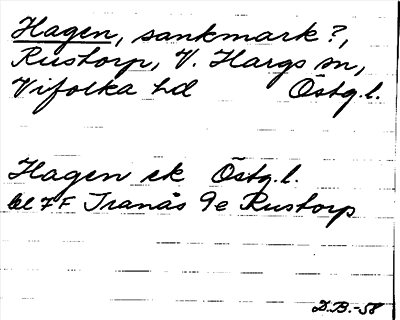 Hagen, sankmark?,
Rustorp, V. Hargs sn,
Vifolka hd Östg.l.
Hagen ek Östg.l.
bl 7F Tranås 9e Rustorp
D.B.-58